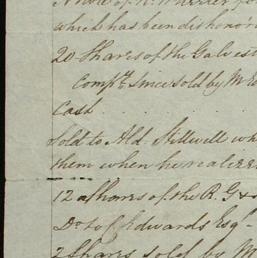 A note of R. Warner fo
which has been dishonor
20 Shares of the Galvest
Compy. since sold by M E
Cash
Sold to Ald. Stillwell wh
them when he realizes
12 a shares of the R. G &
Do to J Edwards Esqr.
2 Shares sold by M